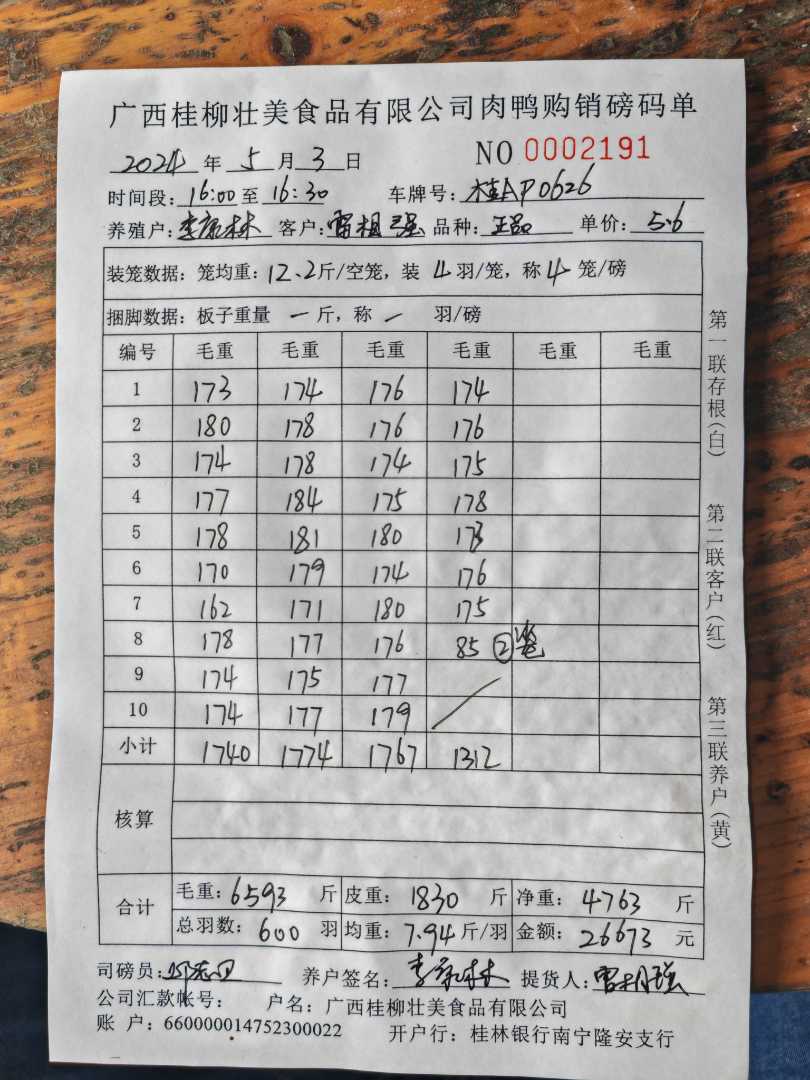 广西桂柳壮美食品有限公司肉鸭购销磅码单
2024 年 5 月 3 日 NO 0002191
时间段: 16:00 至 16:30 车牌号: 桂AP0626
养殖户: 李康林 客户: 雷相强 品种: 正品 单价: 5.6
装笼数据: 笼均重: 12.2斤/空笼, 装 4 羽/笼, 称 4 笼/磅
捆脚数据: 板子重量 一 斤, 称 一 羽/磅
编号 毛重 毛重 毛重 毛重 毛重 毛重
1 173 174 176 174
2 180 178 176 176
3 174 178 174 175
4 177 184 175 178
5 178 181 180 173
6 170 179 174 176
7 162 171 180 175
8 178 177 176 85 ②笼
9 174 175 177
10 174 177 179
小计 1740 1774 1767 1312
核算
合计 毛重: 6593 斤 皮重: 1830 斤 净重: 4763 斤
总羽数: 600 羽 均重: 7.94 斤/羽 金额: 26673 元
司磅员: 养户签名: 李康林 提货人: 雷相强
公司汇款帐号: 户名: 广西桂柳壮美食品有限公司
账 户: 660000014752300022 开户行: 桂林银行南宁隆安支行
第一联存根(白)
第二联客户(红)
第三联养户(黄)